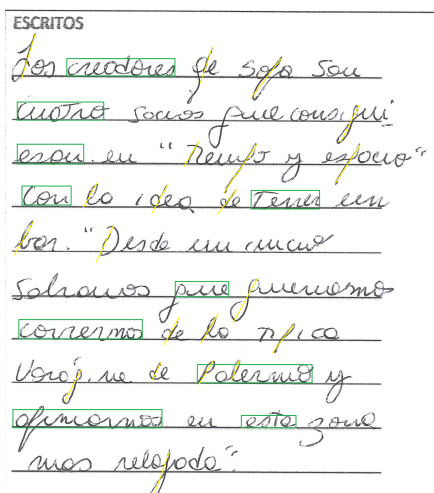 ESCRITOS
Los creadores de Soja Son
cuatro socios que consigui
eron en "Tiempo y espacio"
con la idea de Tener un
bar. "Desde un inicio
Sabíamos que queríamos
corrernos de la típica
Vorágine de Palermo y
abrirnos en esta zona
mas relajada".